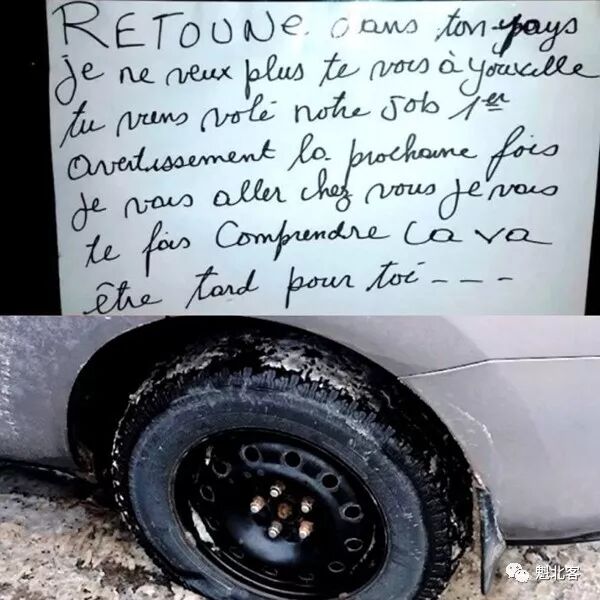 RETOUNe dans ton pays
je ne veux plus te vois à youville
tu viens volé notre Job 1er
avertissement la prochaine fois
je vais aller chez vous je vais
te fais Comprendre Ca va
être tard pour toi ----
魁北客